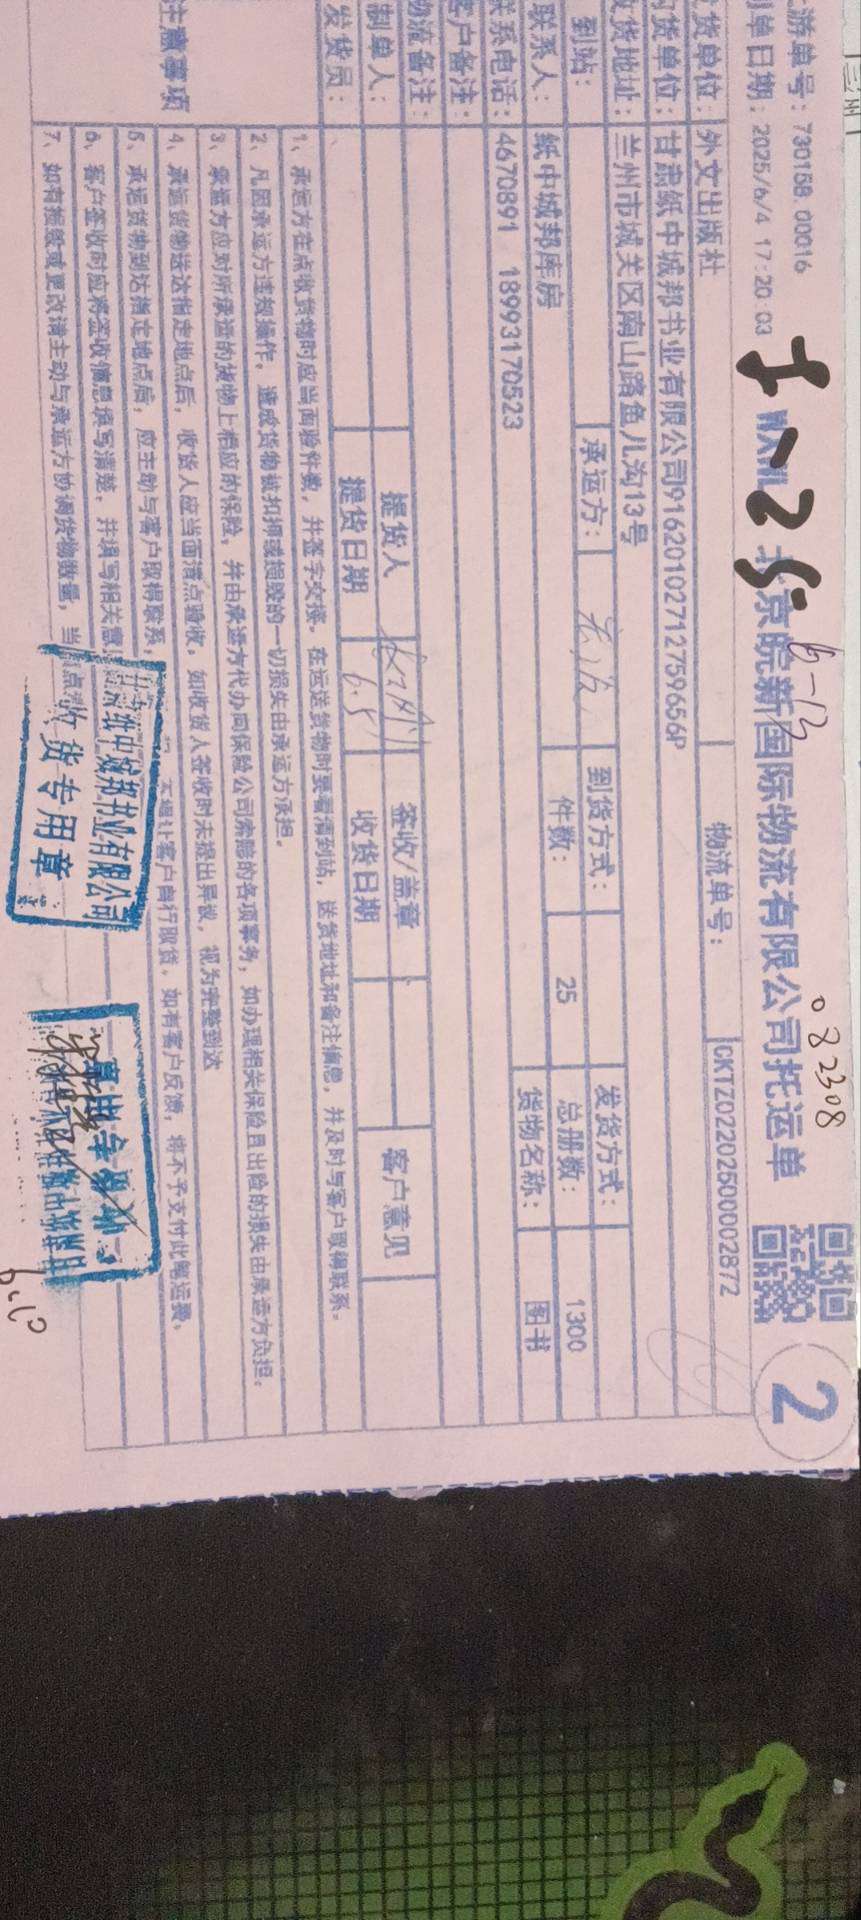 兰州
游单号：730158.00016
WXWL 北京皖新国际物流有限公司托运单
082308
2
单日期：2025/6/4 17:20:03
1-25
6-13
货单位：外文出版社
物流单号：CKTZ02202500002872
货单位：甘肃纸中城邦书业有限公司91620102712759656P
货地址：兰州市城关区南山路鱼儿沟13号
到站：
承运方：
到货方式：
发货方式：
联系人：纸中城邦库房
件数：25
总册数：1300
货物名称：图书
联系电话：4670891 18993170523
客户备注：
物流备注：
制单人：
提货人
签收/盖章
客户意见
发货员：
提货日期 6.5
收货日期
注意事项
1、承运方在点收货物时应当面验件数，并签字交接。在运送货物时要看清到站，送货地址和备注信息，并及时与客户取得联系。
2、凡因承运方违规操作，造成货物被扣押或损毁的一切损失由承运方承担。
3、承运方应对所承运的货物上相应的保险，并由承运方代办向保险公司索赔的各项事务，如办理相关保险且出险的损失由承运方负担。
4、承运货物送达指定地点后，收货人应当面清点验收，如收货人签收时未提出异议，视为完整到达
5、承运货物到达指定地点后，应主动与客户取得联系，
客户自行取货，如有客户反馈，将不予支付此笔运费。
6、客户签收时应将签收信息填写清楚，并填写相关意
7、如有损毁或更改请主动与承运方协调货物数量，当
纸中城邦书业有限公司
收货专用章
6.13